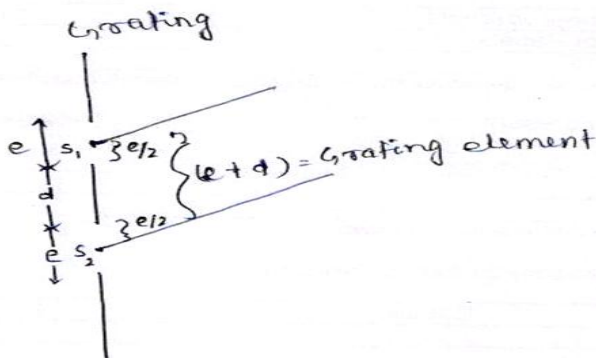 Grating
e
S₁
}e/2
{(e + d) = Grating element
d
}e/2
e
S₂